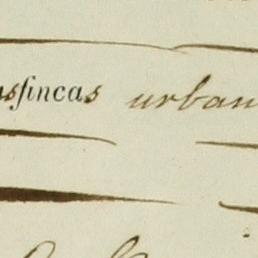 fincas urban